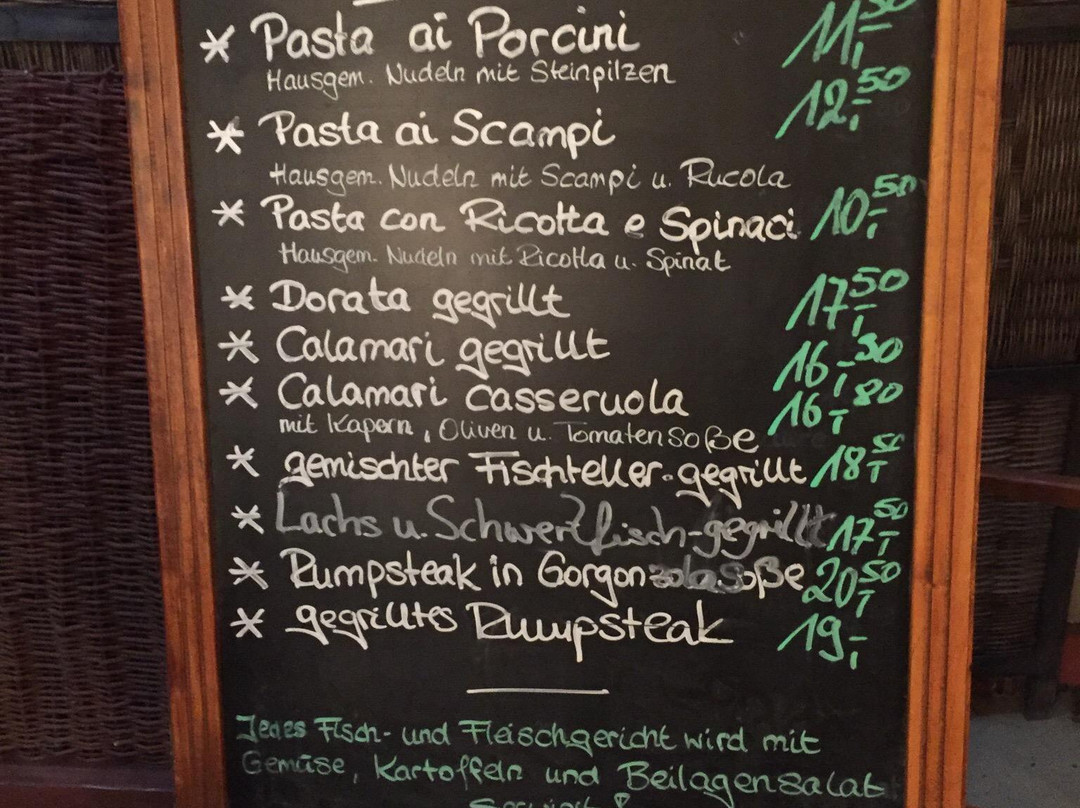 * Pasta ai Porcini 11,50
Hausgem. Nudeln mit Steinpilzen
* Pasta ai Scampi 12,50
Hausgem. Nudeln mit Scampi u. Rucola
* Pasta con Ricotta e Spinaci 10,50
Hausgem. Nudeln mit Ricotta u. Spinat
* Dorata gegrillt 17,50
* Calamari gegrillt
* Calamari casseruola 16,80
mit Kapern, Oliven u. Tomatensoße
* gemischter Fischteller-gegrillt 18,50
* Lachs u. Schwertfisch-gegrillt 17,50
* Rumpsteak in Gorgonzolasoße 20,50
* gegrilltes Rumpsteak 19,-
Jedes Fisch- und Fleischgericht wird mit
Gemüse, Kartoffeln und Beilagensalat